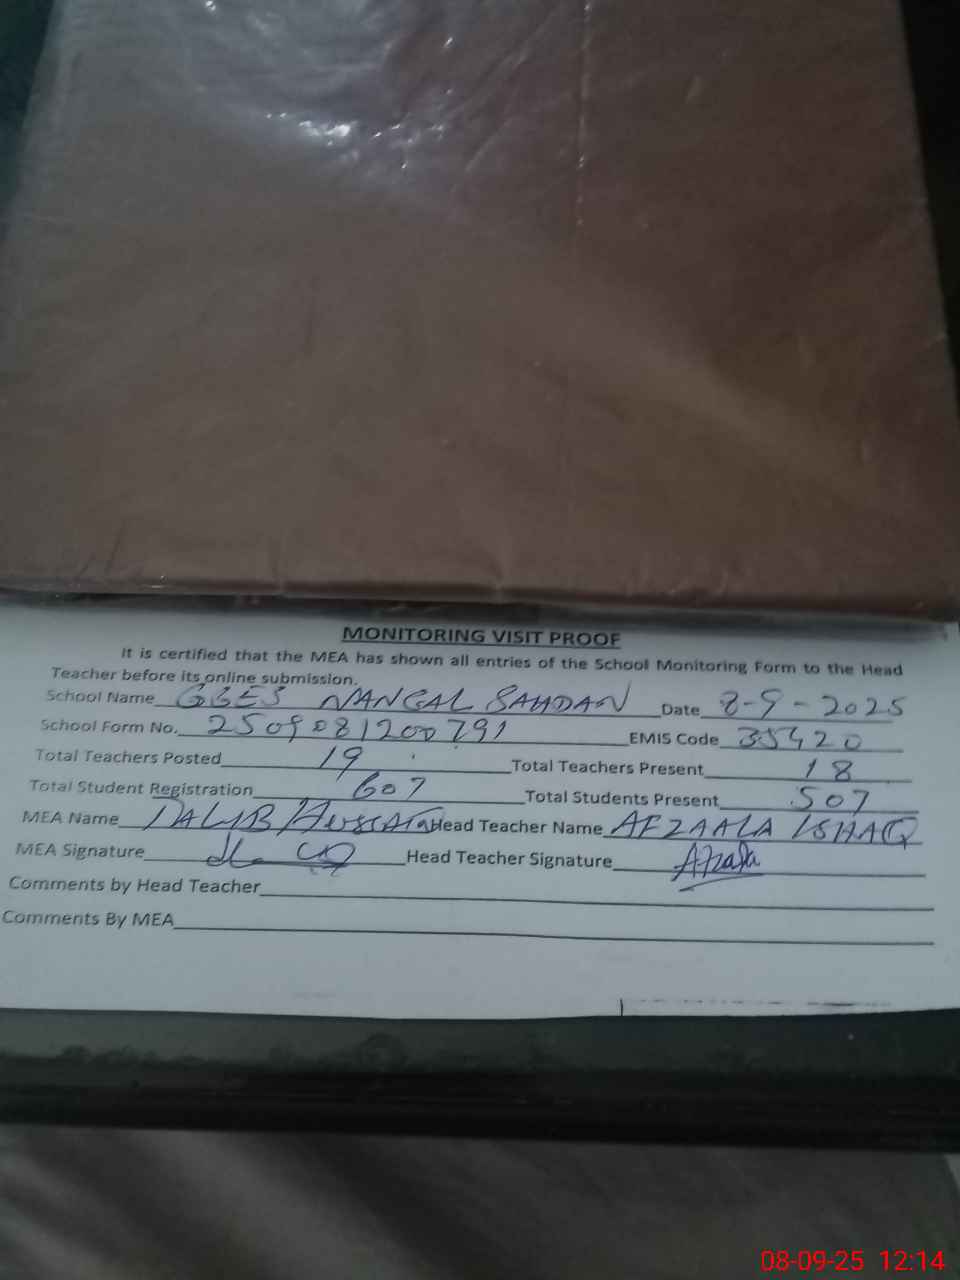 MONITORING VISIT PROOF
It is certified that the MEA has shown all entries of the School Monitoring Form to the Head
Teacher before its online submission.
School Name GGES NANGAL SAHDAN Date 8-9-2025
School Form No. 2509081200791 EMIS Code 35420
Total Teachers Posted 19 Total Teachers Present 18
Total Student Registration 607 Total Students Present 507
MEA Name Head Teacher Name AFZAALA ISHAQ
MEA Signature Head Teacher Signature Afzala
Comments by Head Teacher
Comments By MEA
08-09-25 12:14